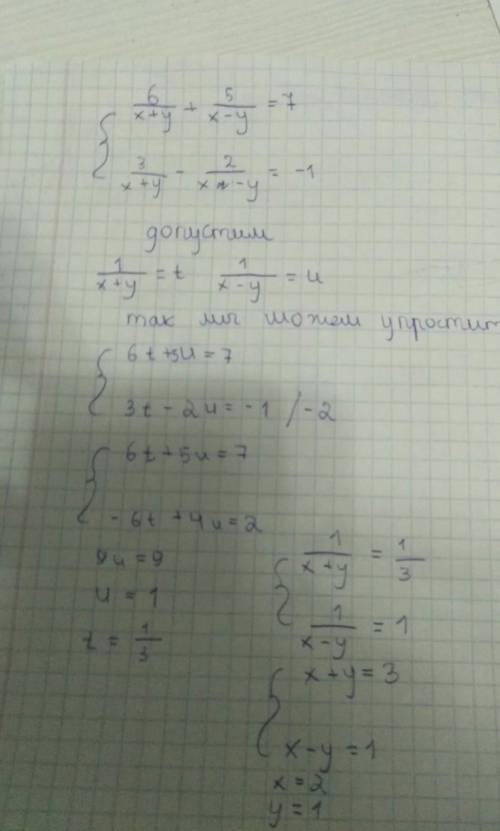 6/(x+y) + 5/(x-y) = 7
3/(x+y) - 2/(x-y) = -1
допустим
1/(x+y) = t 1/(x-y) = u
так мы можем упростит
6t+5u=7
3t-2u=-1 /-2
6t+5u=7
-6t+4u=2
9u=9
u=1
t=1/3
1/(x+y) = 1/3
1/(x-y) = 1
x+y=3
x-y=1
x=2
y=1